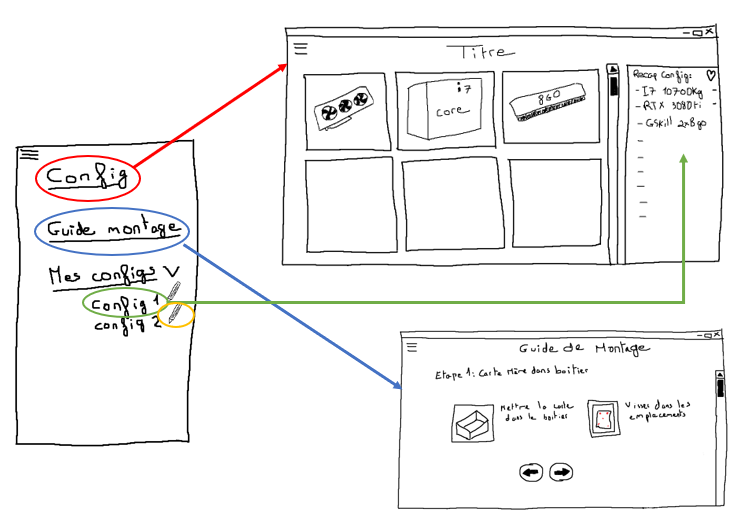 Config
Guide montage
Mes configs V
config 1
config 2
Titre
i7
core
8GO
Recap Config:
- I7 10700kg -
- RTX 3080ti -
- Gskill 2x8go
Guide de Montage
Etape 1: Carte Mère dans boitier
Mettre la carte
dans le boitier
Visses dans les
emplacements